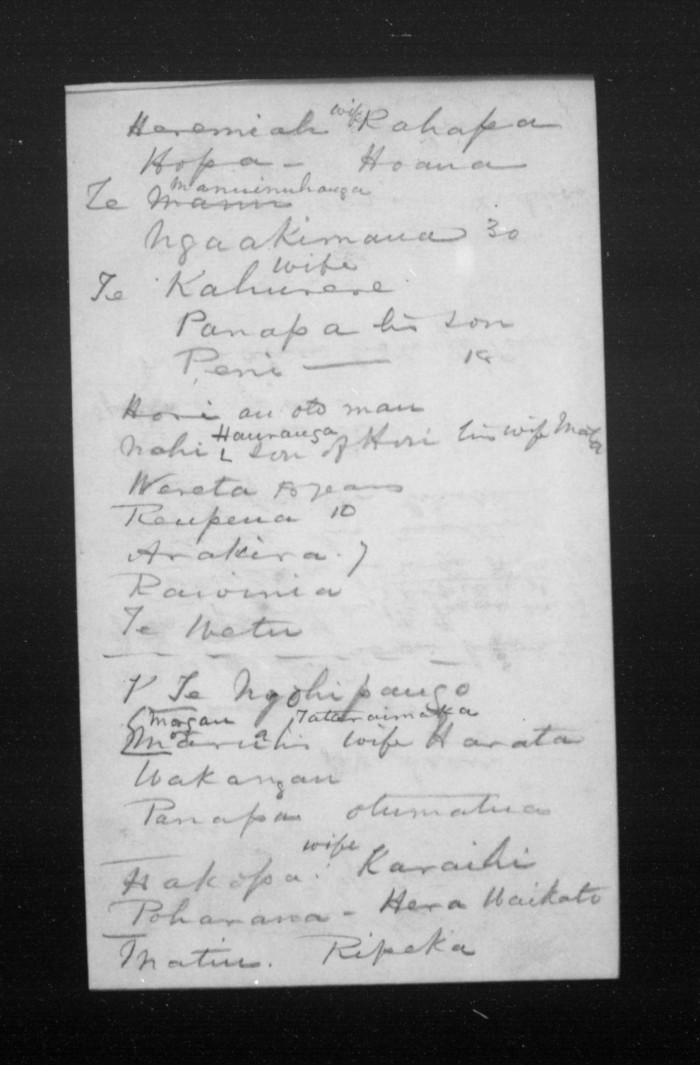 Heremiah wife Rahapa
Hopa - Hoana
Te Manuinuhanga
Ngaakimana 30
wife
Te Kahurere
Panapa his son
Peni —
Hori an old man
Nahi Hauranga son of Hori his wife
Wereta years
Reupena 10
Arakira. 7
Rawinia
Te Watu
Te Ngohipango
Morgan Tataraimaka
his wife Harata
Wakangau
Panapa otumatua
wife
Hakopa. Karaihi
Poharama - Hera Waikato
Matiu. Ripeka